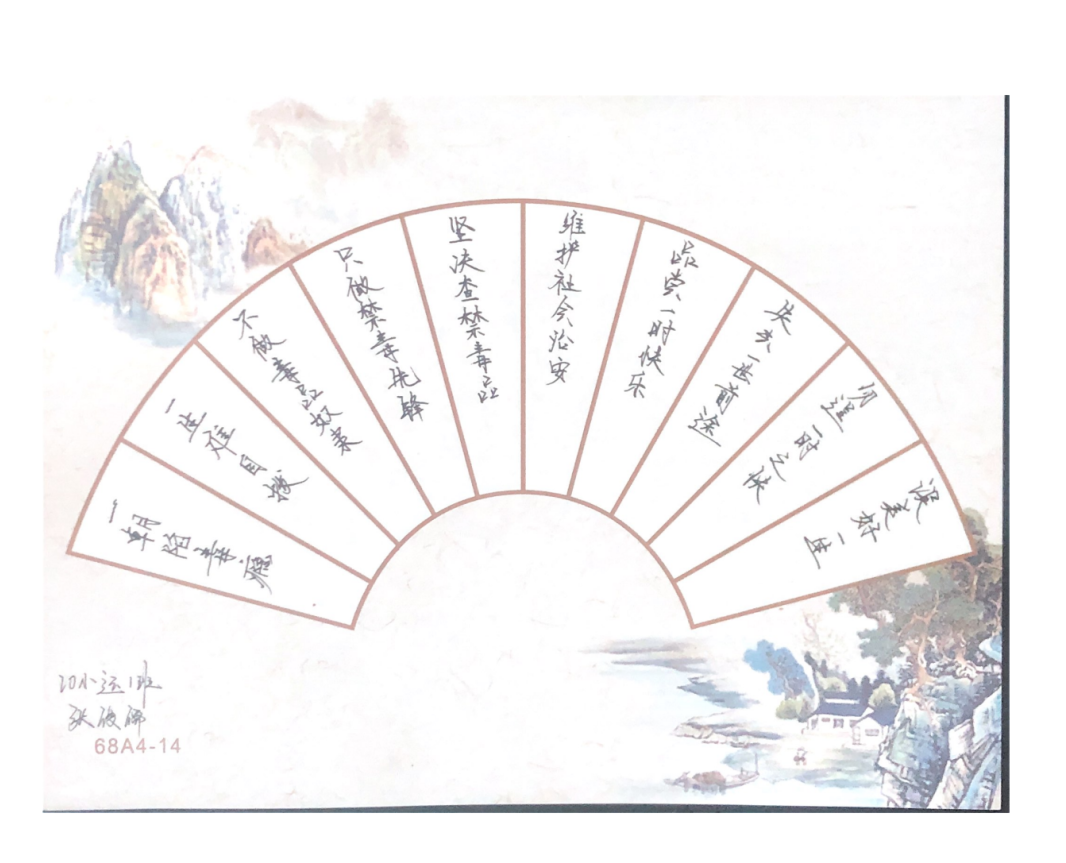 一朝陷毒瘾
一生难自拔
不做毒品奴隶
只做禁毒先锋
坚决查禁毒品
维护社会治安
品尝一时快乐
失去一世前途
勿逞一时之快
误美好一生
20小运1班
张俊
68A4-14